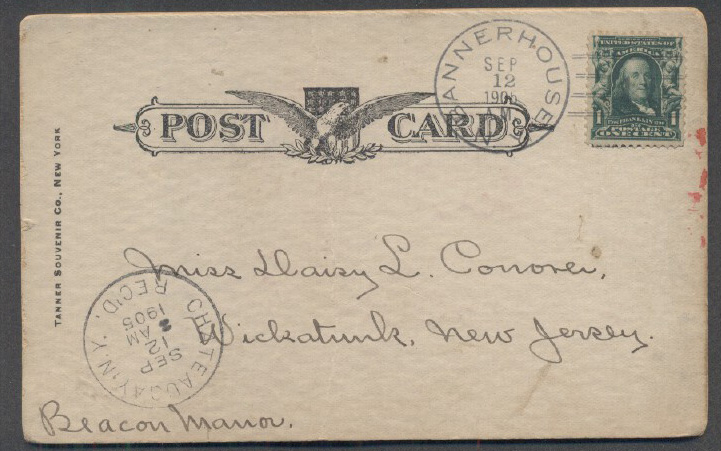 POST CARD
BANNERHOUSE
SEP
12
1905
N.Y.
UNITED STATES OF
AMERICA
1 1
FRANKLIN
POSTAGE
ONE CENT
TANNER SOUVENIR CO., NEW YORK
Miss Daisy L. Conover,
Wickatunk, New Jersey.
CHATEAUGAY, N.Y.
SEP
12
AM
1905
REC'D.
Beacon Manor.